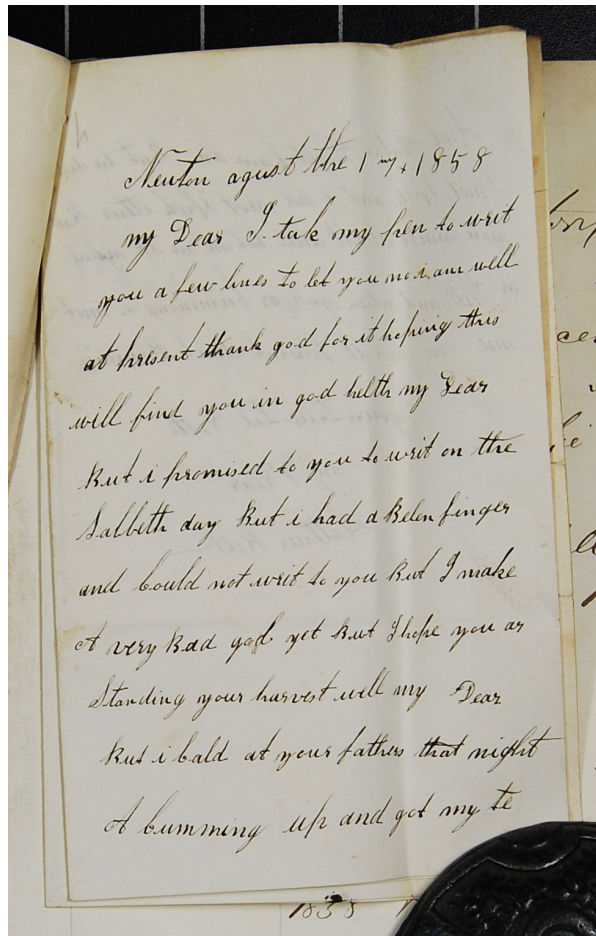 Newton agust the 1 my, 1858
my Dear I tak my pen to writ
you a few lines to let you no i am well
at present thank god for it hoping this
will find you in god helth my Dear
But i promised to you to writ on the
Salbeth day But i had a Belen finger
and Could not writ to you But I make
A very Bad gob yet But I hope you ar
Standing your harvest well my Dear
But i Cald at your fathers that night
A Cumming up and got my te
1858